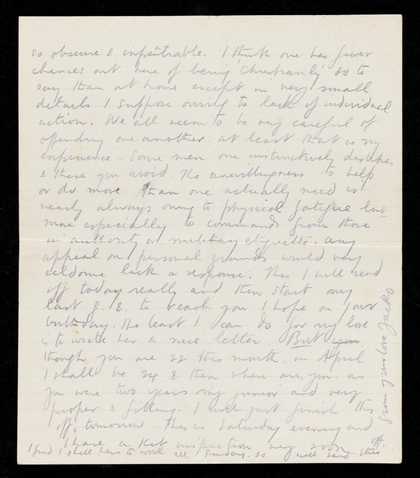 so obscure & impenetrable. I think one has fewer
chances out here of being Christianly so to
say than at home except in very small
details I suppose owing to lack of individual
action. We all seem to be very careful of
offending one another at least that is my
experience. Some men one instinctively dislikes
& these you avoid. The unwillingness to help
or do more than one actually need is
nearly always owing to physical fatigue but
more especially to commands from those
in authority or military etiquette. any
appeal on personal grounds would very
seldom lack a response. This I will send
off today really and then start my
last to reach you I hope on your
birthday. The least I can do for my love
is to write her a nice letter. But
though you are 28 this month, in April
I shall be & then where are you. as
you were two years my junior and very
proper & fitting. I will just finish this
off tomorrow. This is Saturday evening and
I have a Kit inspection very soon.
I find I shall have to work all Sunday. so I will send this off.
from your love Jacko